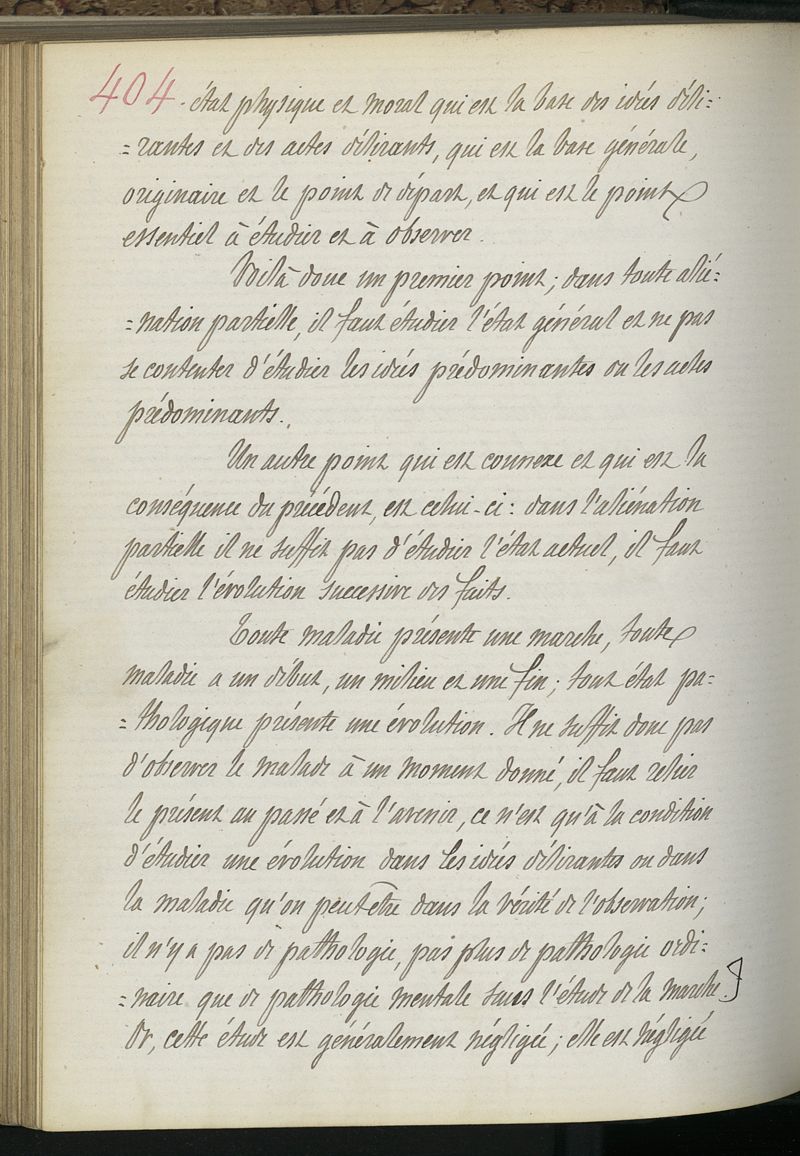 404. état physique et moral qui est la base des idées déli=
=rantes et des actes délirants, qui est la base générale,
originaire et le point de départ, et qui est le point
essentiel à étudier et à observer.
Voilà donc un premier point; dans toute alié=
=nation partielle, il faut étudier l'état général et ne pas
se contenter d'étudier les idées prédominantes ou les actes
prédominants.
Un autre point qui est connexe et qui est la
conséquence du précédent, est celui-ci: dans l'aliénation
partielle il ne suffit pas d'étudier l'état actuel, il faut
étudier l'évolution successive des faits.
Toute maladie présente une marche, toute
maladie a un début, un milieu et une fin; tout état pa=
=thologique présente une évolution. Il ne suffit donc pas
d'observer le malade à un moment donné, il faut relier
le présent au passé et à l'avenir, ce n'est qu'à la condition
d'étudier une évolution dans les idées délirantes ou dans
la maladie qu'on peut être dans la vérité de l'observation;
il n'y a pas de pathologie, pas plus de pathologie ordi=
=naire que de pathologie mentale sans l'étude de la marche.
Or, cette étude est généralement négligée; elle est négligée